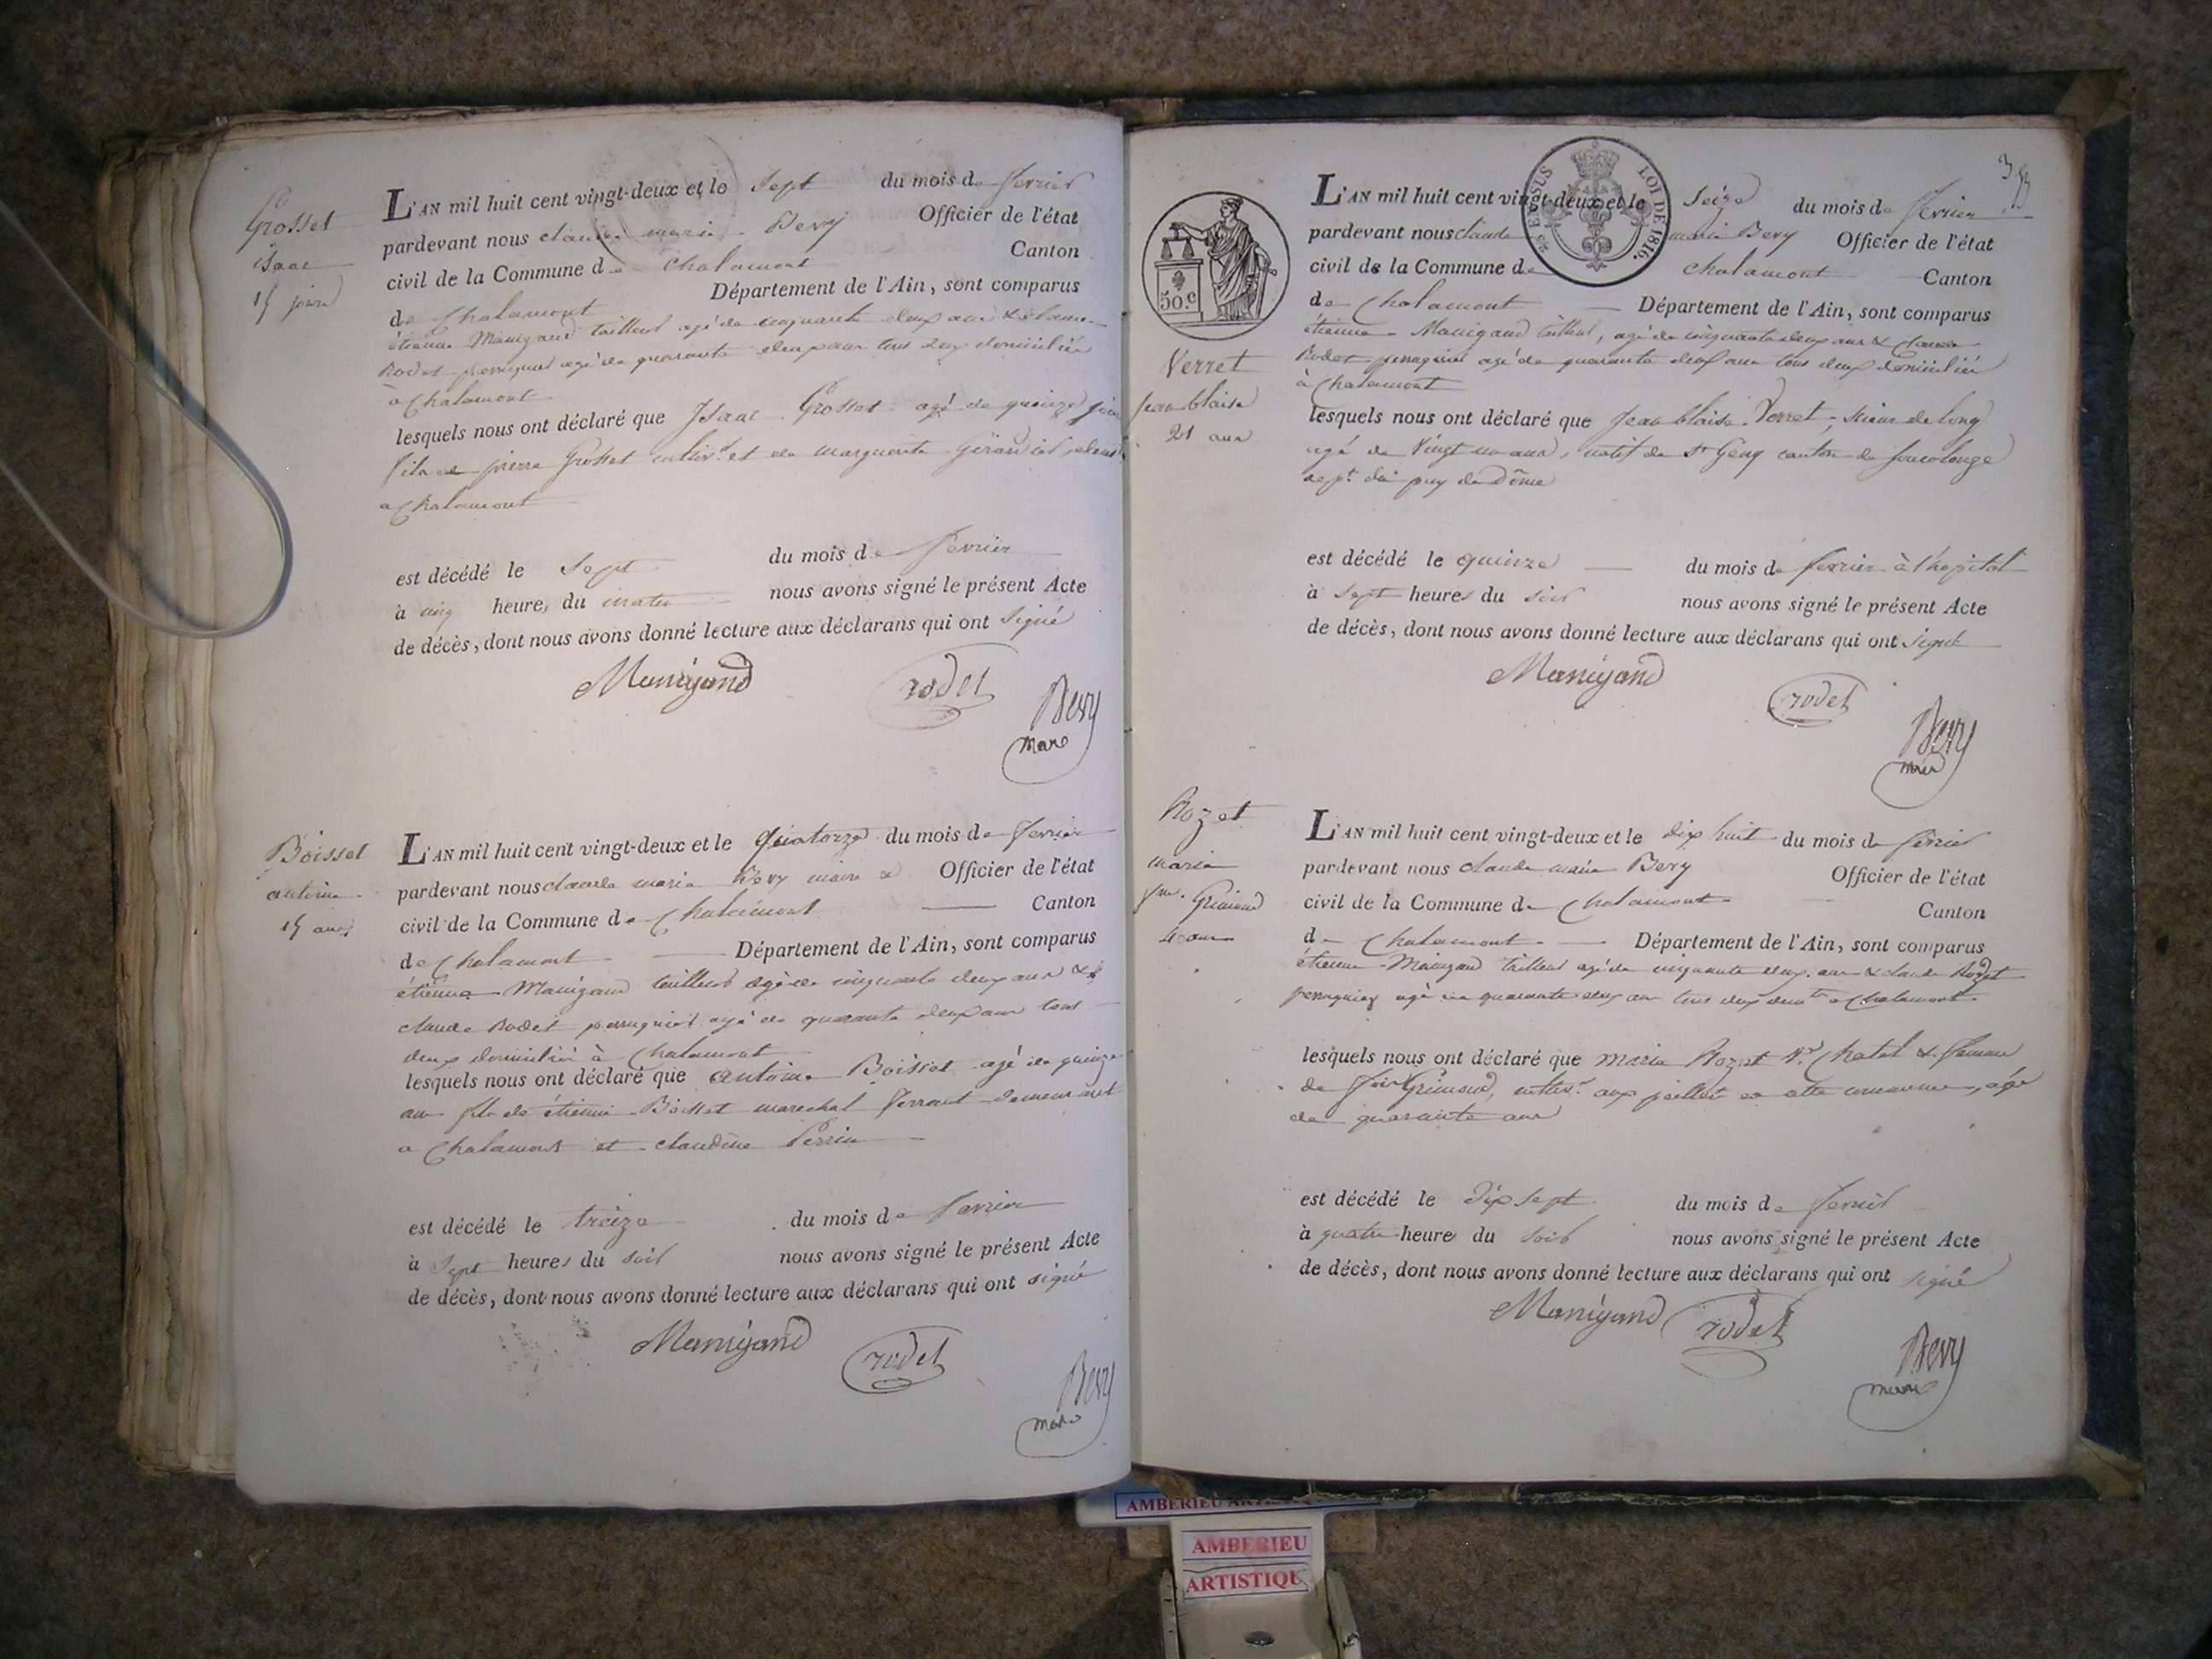 Grosset
isaac
15 jours
L'AN mil huit cent vingt-deux et le sept du mois de fevrier
pardevant nous claude marie Bevy Officier de l'état
civil de la Commune de chalamont Canton
de Chalamont Département de l'Ain, sont comparus
étienne Manigand tailleur agé de cinquante deux ans & claude
Rodet perruquier agé de quarante deux ans tous deux domiciliés
à Chalamont
lesquels nous ont déclaré que Isaac Grosset agé de quinze jours
fils de pierre Grosset cultivr. et de marguerite
a Chalamont
est décédé le sept du mois de fevrier
à cinq heures du matin nous avons signé le présent Acte
de décès, dont nous avons donné lecture aux déclarans qui ont signé
Manigand rodet Bevy
maire
Boisset
antoine
15 ans
L'AN mil huit cent vingt-deux et le quatorze du mois de fevrier
pardevant nous claude marie Bevy maire & Officier de l'état
civil de la Commune de Chalamont Canton
de Chalamont Département de l'Ain, sont comparus
étienne Manigand tailleur agé de cinquante deux ans &
claude Rodet perruquier agé de quarante deux ans tous
deux domiciliés à Chalamont
lesquels nous ont déclaré que antoine Boisset agé de quinze
ans fils de étienne Boisset marechal ferrant demeurant
a Chalamont et claudine Perrin
est décédé le treize du mois de fevrier
à sept heures du soir nous avons signé le présent Acte
de décès, dont nous avons donné lecture aux déclarans qui ont signé
Manigand rodet Bevy
maire
353
50.c
EN SUS LOI DE 1816.
Verret
jean blaise
21 ans
L'AN mil huit cent vingt-deux et le seize du mois de fevrier
pardevant nous claude marie Bevy Officier de l'état
civil de la Commune de chalamont Canton
de Chalamont Département de l'Ain, sont comparus
étienne Manigand tailleur, agé de cinquante deux ans & claude
Rodet perruquier agé de quarante deux ans tous deux domiciliés
à Chalamont
lesquels nous ont déclaré que jean blaise Verret, scieur de long
agé de vingt un ans, natif de St Geny canton de
dept. du puy de Dôme
est décédé le quinze du mois de fevrier à l'hopital
à sept heures du soir nous avons signé le présent Acte
de décès, dont nous avons donné lecture aux déclarans qui ont signé
Manigand rodet Bevy
maire
Rozet
marie
fme. Grimaud
40 ans
L'AN mil huit cent vingt-deux et le dix huit du mois de fevrier
pardevant nous claude marie Bevy Officier de l'état
civil de la Commune de Chalamont Canton
de Chalamont Département de l'Ain, sont comparus
étienne Manigand tailleur agé de cinquante deux ans & claude Rodet
perruquier agé de quarante deux ans tous deux a Chalamont
lesquels nous ont déclaré que marie Rozet Chatel & femme
de Grimaud, cultivr. aux en cette commune, agée
de quarante ans
est décédé le dix sept du mois de fevrier
à quatre heures du soir nous avons signé le présent Acte
de décès, dont nous avons donné lecture aux déclarans qui ont signé
Manigand rodet Bevy
maire
AMBERIEU
AMBERIEU
ARTISTIQU